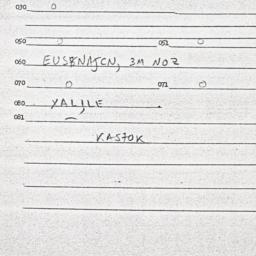 030 0
050 0 051 0
060 EUSENAJCN, 3M NO2
070 0 071 0
080 YALILE
081
KASTOK